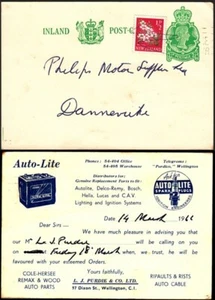 INLAND POST-C
NEW ZEALAND
Philips Motor Supplies
Dannevirke
Auto-Lite
Phones: 54-404 Office
54-405 Warehouse
Telegrams:
"Purdie," Wellington
Distributors for:
Genuine Replacement Parts to fit:
Autolite, Delco-Remy, Bosch,
Hella, Lucas and C.A.V.
Lighting and Ignition Systems
AUTOLITE
SPARK PLUGS
Date 14 March 196
Dear Sirs —
We have much pleasure in advising you that
our Mr L. J. Purdie will be calling on you
on Friday 18th March when, we trust, we will be
favoured with your esteemed Orders.
Yours faithfully,
COLE-HERSEE
REMAX & WOOD
AUTO PARTS
L. J. PURDIE & CO. LTD.
97 Dixon St., Wellington, C.1
RIPAULTS & RISTS
AUTO CABLE